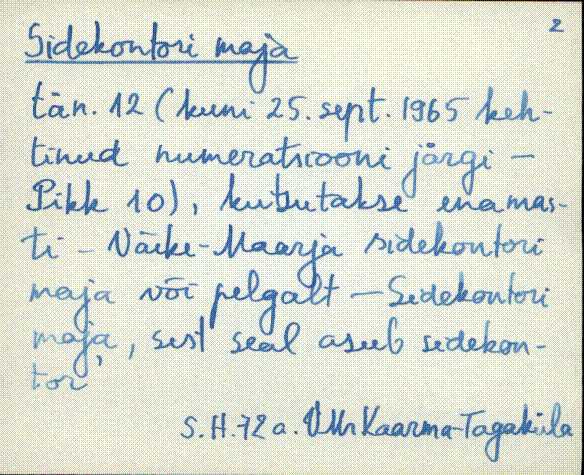 2
Sidekontori maja
tän. 12 (kuni 25. sept. 1965 keh-
tinud numeratsiooni järgi –
Pikk 10), kutsutakse enamas-
ti – Väike-Maarja sidekontori
maja või pelgalt – Sidekontori
maja, sest seal asub sidekon-
tor
S.H. 72 a. Kaarma-Tagaküla